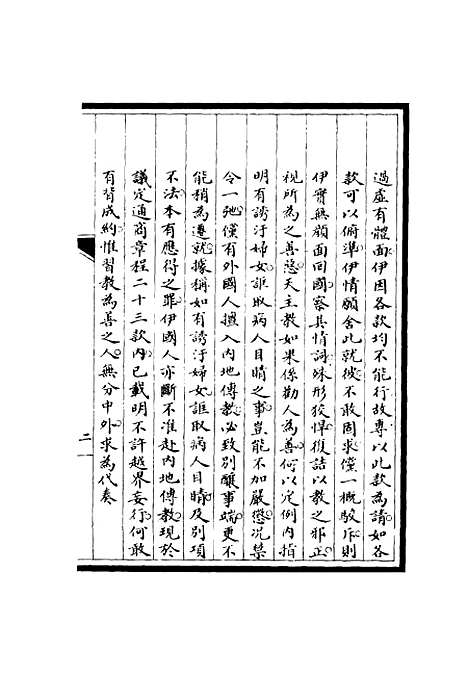 過虛有體面伊因各款均不能行故專以此款為請如各
款可以俯準伊情願舍此就彼不敢固求儻一概駁斥則
伊實無顏面回國察其情詞殊形狡悍復詰以教之邪正
視所為之善惡天主教如果係勸人為善何以定例內指
明有誘汙婦女誆取病人目睛之事豈能不加嚴懲況禁
令一弛儻有外國人擅入內地傳教必致別釀事端更不
能稍為遷就據稱如有誘汙婦女誆取病人目睛及別項
不法本有應得之罪伊國人亦斷不准赴內地傳教現於
議定通商章程二十三款內已載明不許越界妄行何敢
有背成約惟習教為善之人無分中外求為代奏
二